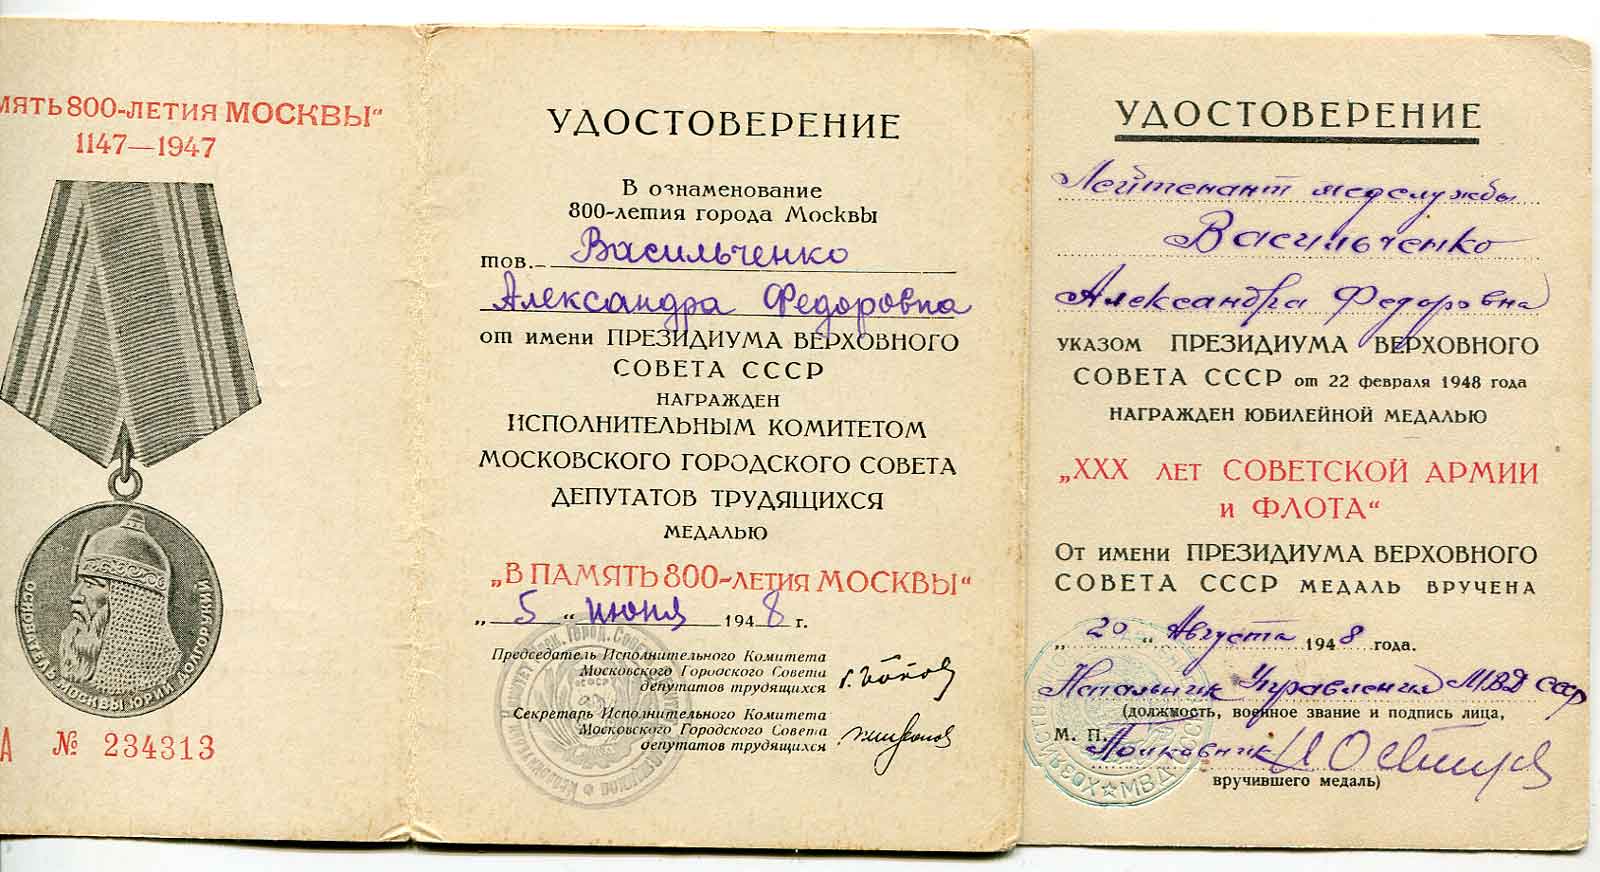 МЯТЬ 800-ЛЕТИЯ МОСКВЫ"
1147—1947
ОСНОВАТЕЛЬ МОСКВЫ ЮРИЙ ДОЛГОРУКИЙ
А № 234313
УДОСТОВЕРЕНИЕ
В ознаменование
800-летия города Москвы
тов. Васильченко
Александра Федоровна
от имени ПРЕЗИДИУМА ВЕРХОВНОГО
СОВЕТА СССР
НАГРАЖДЕН
ИСПОЛНИТЕЛЬНЫМ КОМИТЕТОМ
МОСКОВСКОГО ГОРОДСКОГО СОВЕТА
ДЕПУТАТОВ ТРУДЯЩИХСЯ
МЕДАЛЬЮ
„В ПАМЯТЬ 800-ЛЕТИЯ МОСКВЫ"
„5" июня 1948 г.
Председатель Исполнительного Комитета
Московского Городского Совета
депутатов трудящихся
Секретарь Исполнительного Комитета
Московского Городского Совета
депутатов трудящихся
УДОСТОВЕРЕНИЕ
Лейтенант медслужбы
Васильченко
Александра Федоровна
УКАЗОМ ПРЕЗИДИУМА ВЕРХОВНОГО
СОВЕТА СССР от 22 февраля 1948 года
НАГРАЖДЕН ЮБИЛЕЙНОЙ МЕДАЛЬЮ
„XXX ЛЕТ СОВЕТСКОЙ АРМИИ
и ФЛОТА"
От имени ПРЕЗИДИУМА ВЕРХОВНОГО
СОВЕТА СССР МЕДАЛЬ ВРУЧЕНА
„20" Августа 1948 года.
Начальник Управления МВД СССР
(должность, военное звание и подпись лица,
М. П. Полковник
вручившего медаль)